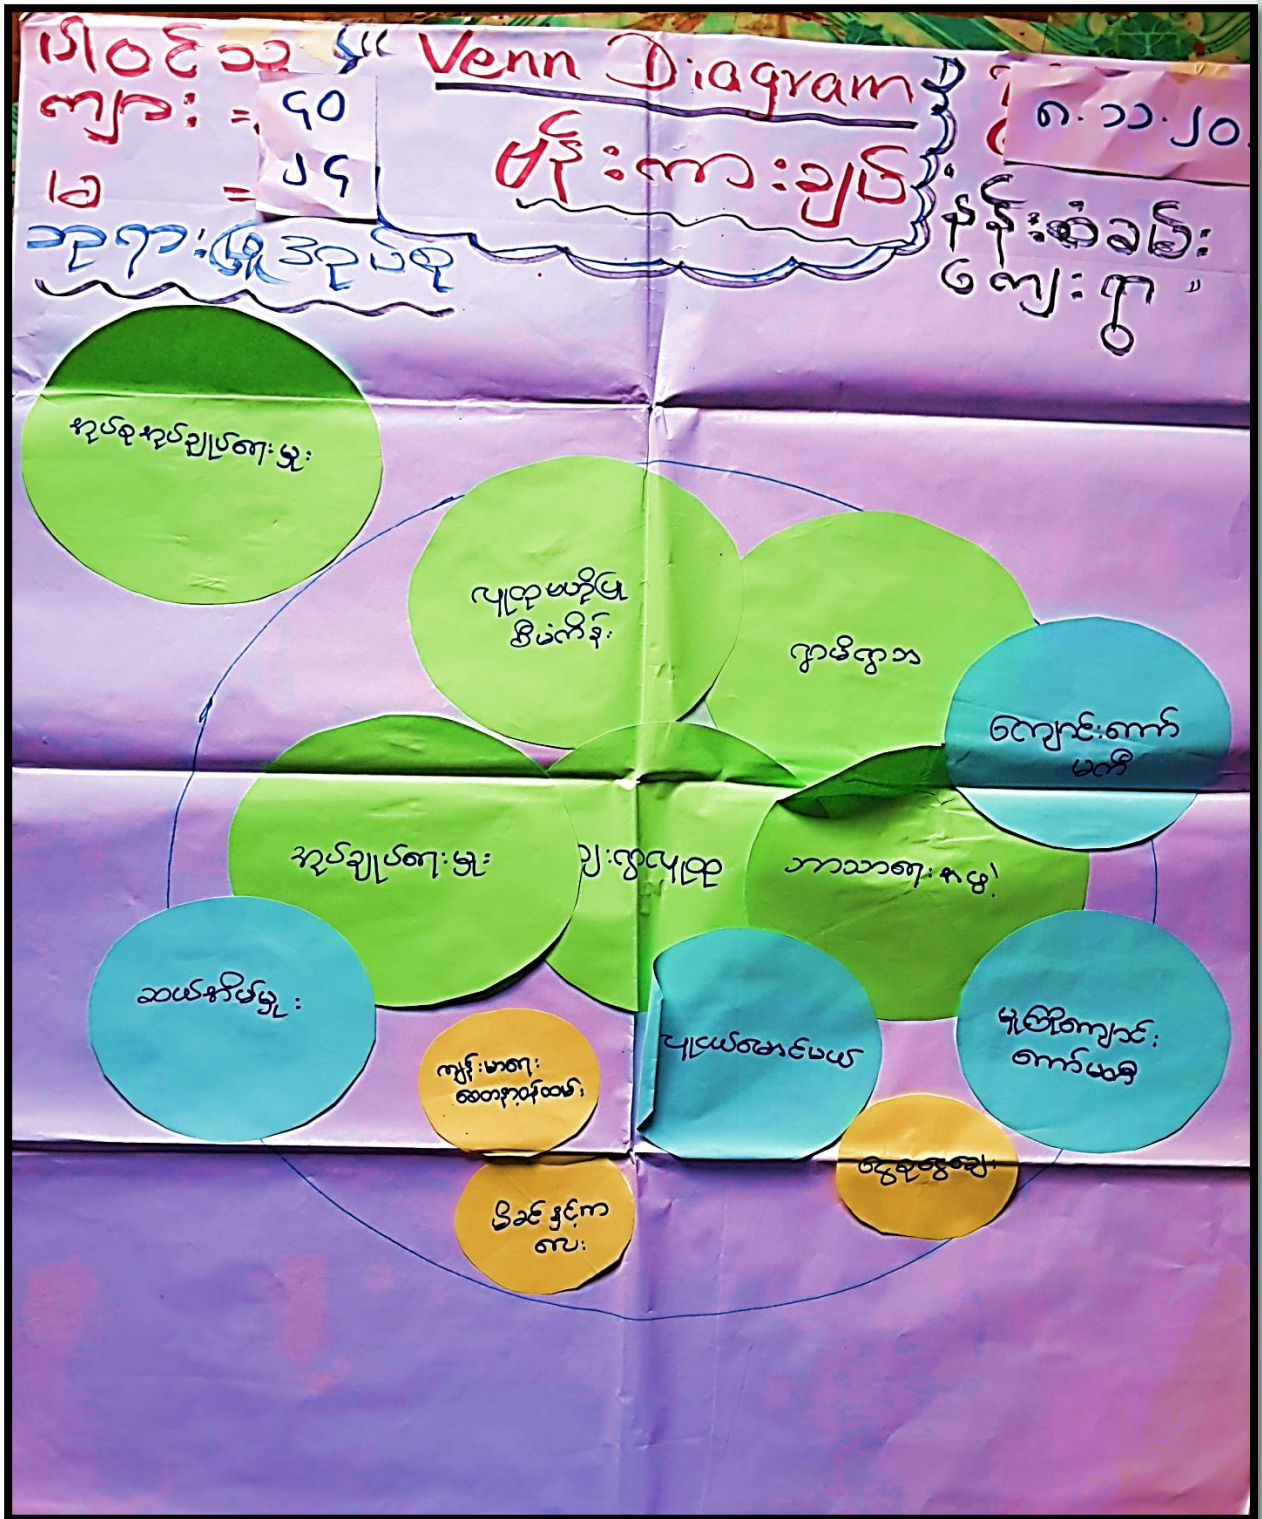 ပါဝင်သူ
ကျား = ၄၀
မ = ၂၄
ဘုရားဖြူအုပ်စု
"Venn Diagram"
ဗန်းကားချပ်
၈.၁၁.၂၀
နန်းစံခမ်း
ကျေးရွာ "
အုပ်စုအုပ်ချုပ်ရေးမှူး
လူထုဗဟိုပြု
စီမံကိန်း
ရွာမိရွာဘ
ကျောင်းကော်
မတီ
အုပ်ချုပ်ရေးမှူး
ကျေးရွာလူထု
ဘာသာရေးအဖွဲ့
ဆယ်အိမ်မှူး
လူငယ်မောင်မယ်
မူကြိုကျောင်း
ကော်မတီ
ကျန်းမာရေး
စေတနာ့ဝန်ထမ်း
ငွေစုငွေချေး
မိခင်နှင့်က
လေး